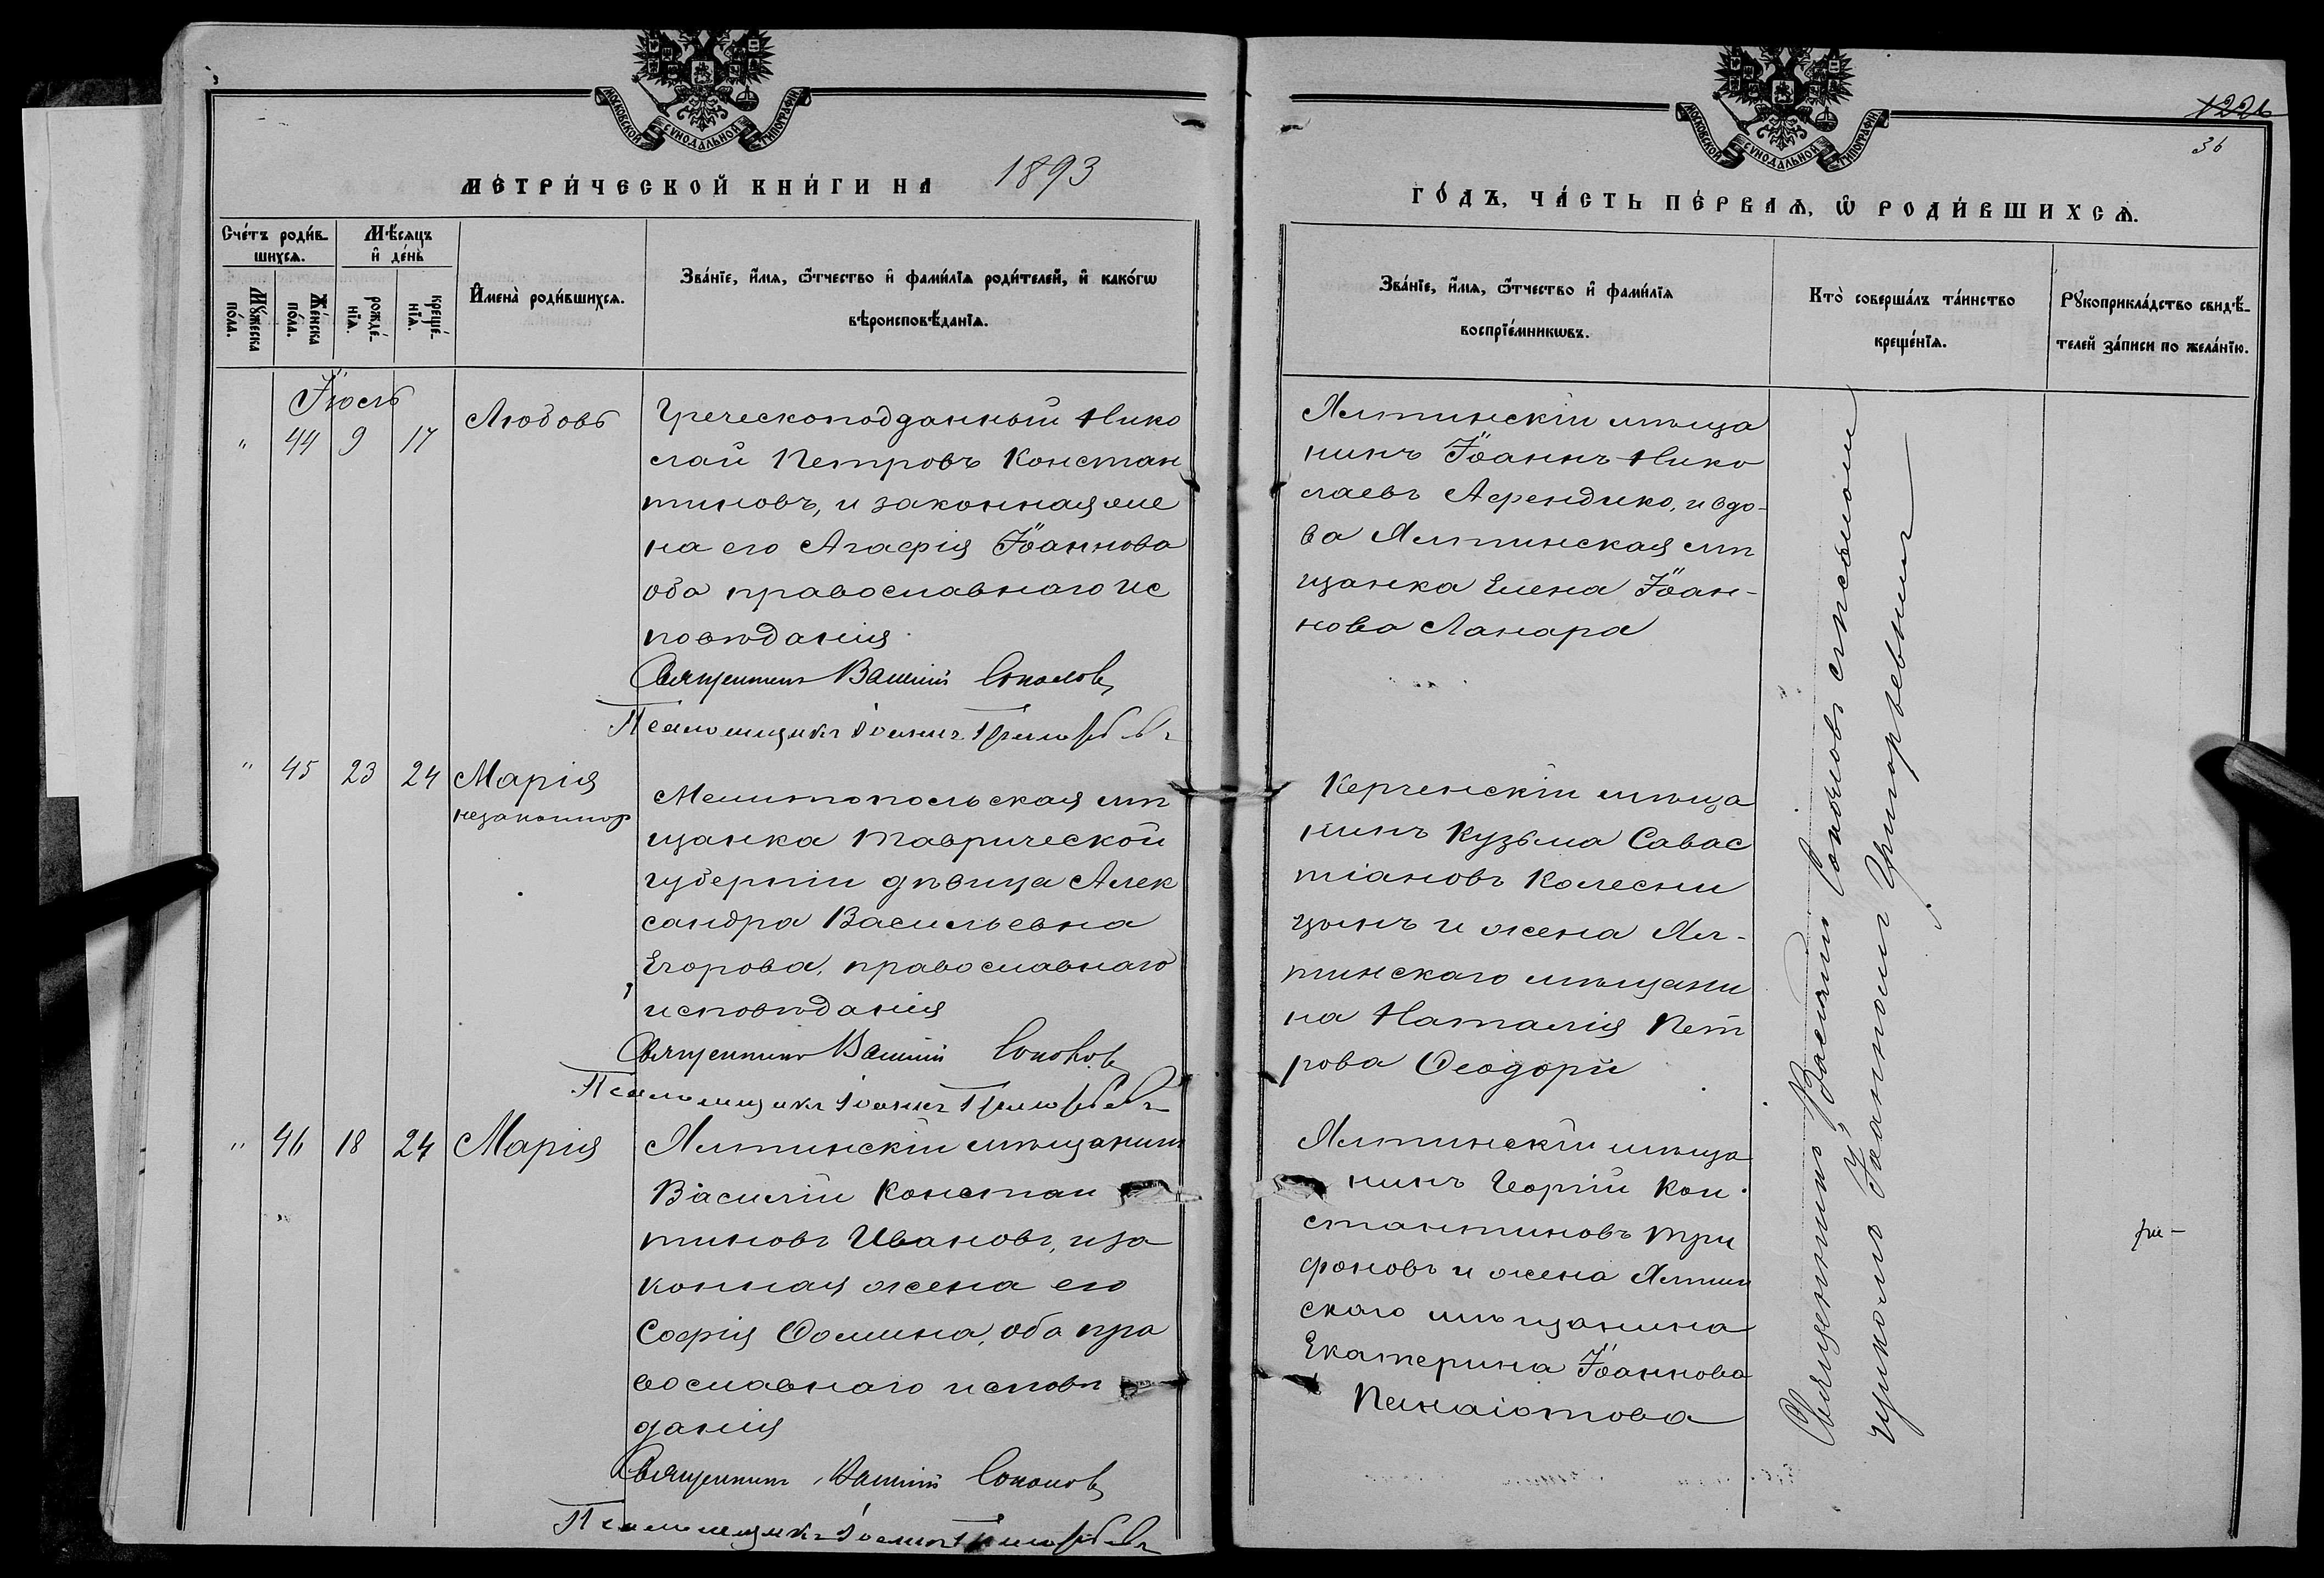 МОСКОВСКОЙ СУНОДАЛЬНОЙ ТИПОГРАФІИ
МЕТРИ́ЧЕСКОЙ КНИ́ГИ НА 1893
Сче́тъ роди́в-
шихсѧ.
Мѣ́сяцъ
и҆ де́нь
Мꙋ́жеска
по́ла.
Же́нска
по́ла.
рожде́-
нїѧ.
креще́-
нїѧ.
И҆мена̀ роди́вшихсѧ.
Зва́нїе, и҆́мѧ, ѻ҆́тчество и҆ фами́лїѧ роди́телей, и҆ како́гѡ
вѣроисповѣ́данїѧ.
Іюль
" 44 9 17
Любовь
Греческоподданный Нико
лай Петровъ Констан
тиновъ, и законная же
на его Агафія Іоаннова
оба православнаго ис
повѣданія
Священникъ Василій Соколовъ
Псаломщикъ Іоаннъ Григорьевъ
" 45 23 24 Марія
незаконнор
Мелитопольская мѣ
щанка Таврической
губерніи дѣвица Алек
сандра Васильевна
Егорова, православнаго
исповѣданія
Священникъ Василій Соколовъ
Псаломщикъ Іоаннъ Григорьевъ
" 46 18 24 Марія
Ялтинскій мѣщанинъ
Василій Констан
тиновъ Ивановъ, и за
конная жена его
Софія Ѳомина, оба пра
вославнаго исповѣ
данія
Священникъ Василій Соколовъ
Псаломщикъ Іоаннъ Григорьевъ
МОСКОВСКОЙ СУНОДАЛЬНОЙ ТИПОГРАФІИ
36
ГО́ДЪ, ЧА́СТЬ ПЕ́РВАѦ, Ѡ҆ РОДИ́ВШИХСѦ.
Зва́нїе, и҆́мѧ, ѻ҆́тчество и҆ фами́лїѧ
воспрїе́мникѡвъ.
Кто̀ соверша́лъ та́инство
креще́нїѧ.
Рꙋкоприкла́дство свидѣ́-
телей за́писи по жела́нїю.
Ялтинскій мѣща
нинъ Іоаннъ Нико
лаевъ Афендико, и вдо-
ва Ялтинская мѣ
щанка Елена Іоан-
нова Ланара
Керченскій мѣща
нинъ Кузьма Савас
тіановъ Колесни
цынъ и жена Ял-
тинскаго мѣщани
на Наталія Пет
рова Ѳеодори
Ялтинскій мѣща
нинъ Георгій Кон
стантиновъ Три
фоновъ и жена Ялтин
скаго мѣщанина
Екатерина Іоаннова
Панаіотова
Священникъ Василій Соколовъ съ псалом
щикомъ Іоанномъ Григорьевымъ